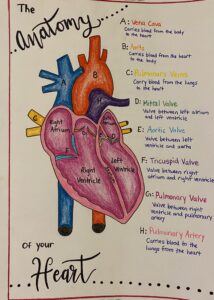 The
Anatomy
of your
Heart
A
B
G
Right
Atrium
Right
Ventricle
Left
Ventricle
A: Vena Cava
Carries blood from the body
to the heart
B: Aorta
Carries blood from the heart
to the body
C: Pulmonary Veins
Carry blood from the lungs
to the heart
D: Mitral Valve
Valve between left atrium
and left ventricle
E: Aortic Valve
Valve between left
ventricle and aorta
F: Tricuspid Valve
Valve between right
atrium and right ventricle
G: Pulmonary Valve
Valve between right
ventricle and pulmonary
artery
H: Pulmonary Artery
Carries blood to the
lungs from the heart